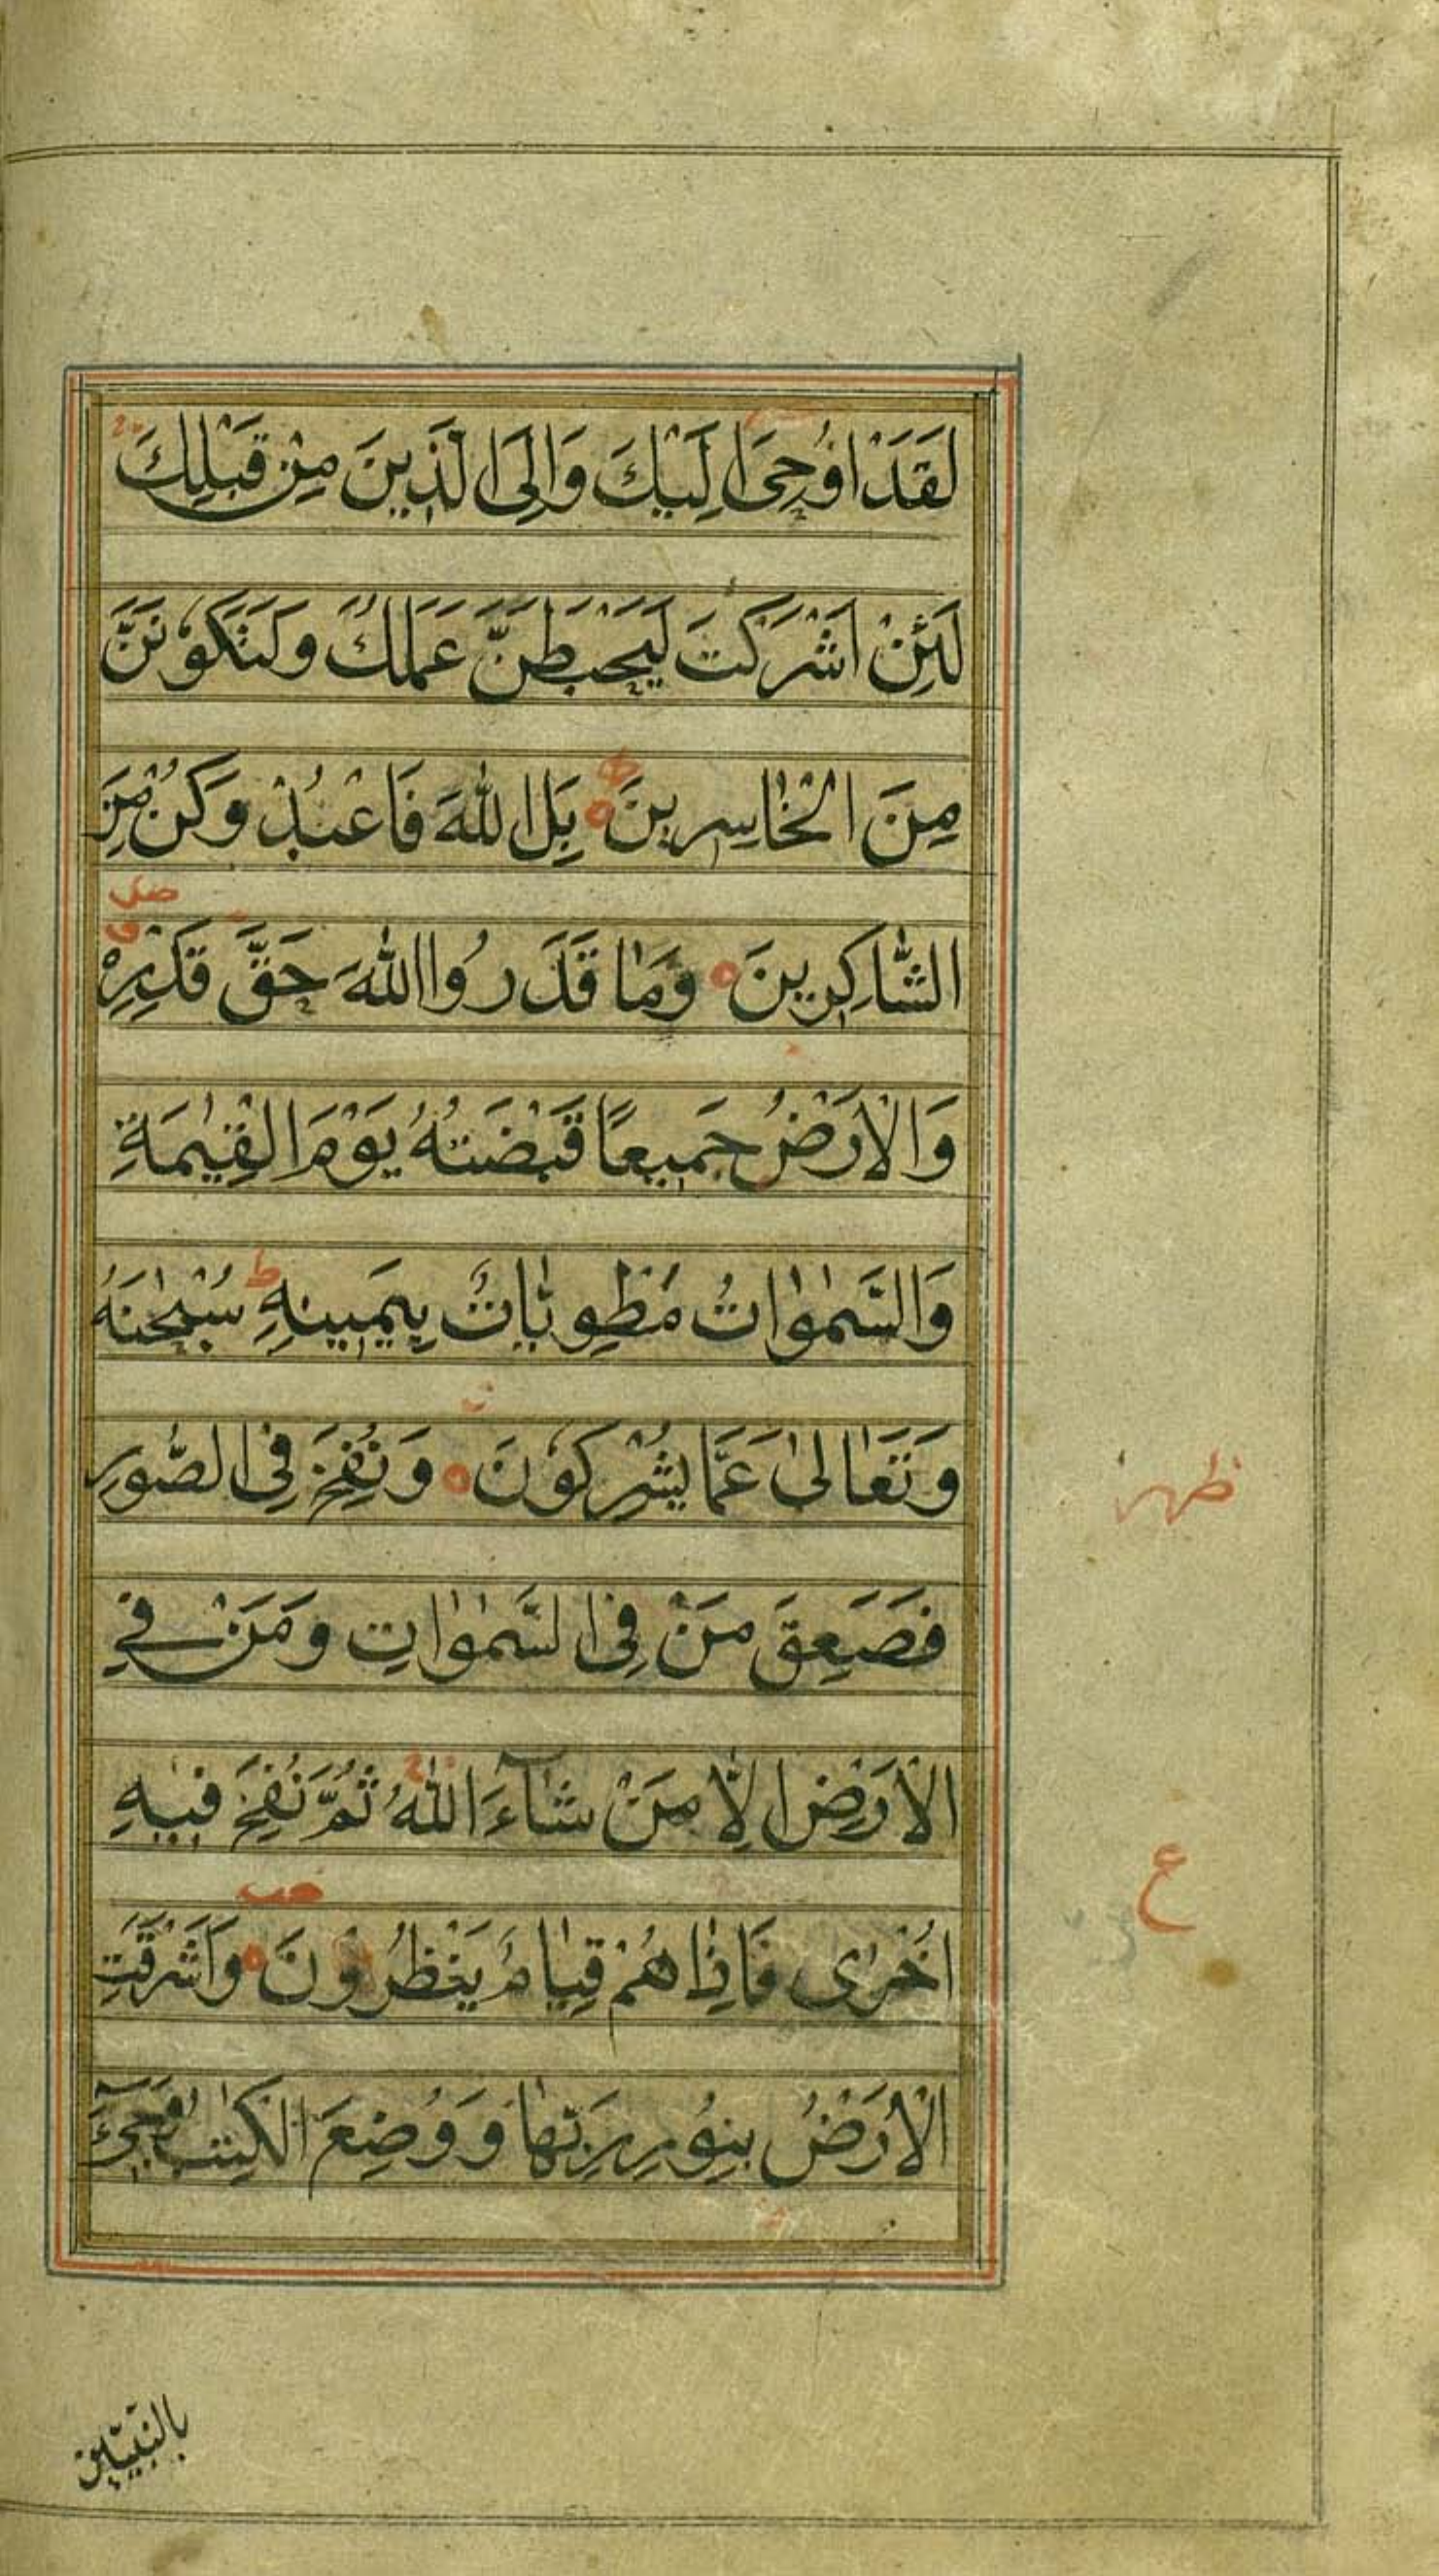 لَقَدْ اُوْحِىَ اِلَيْكَ وَاِلَى الَّذِينَ مِنْ قَبْلِكَ
لَئِنْ اَشْرَكْتَ لَيَحْبَطَنَّ عَمَلُكَ وَلَتَكُوْنَنَّ
مِنَ الْخٰاسِرِينَ ط ه بَلِ اللّٰهَ فَاعْبُدْ وَكُنْ مِنَ
صلى
الشّٰاكِرِينَ ه وَمٰا قَدَرُوا اللّٰهَ حَقَّ قَدْرِهِ ق
وَالْاَرْضُ جَمِيعًا قَبْضَتُهُ يَوْمَ الْقِيٰمَةِ
وَالسَّمٰوٰاتُ مَطْوِيّٰاتٌ بِيَمِينِهِ ط سُبْحٰنَهُ
وَتَعٰالىٰ عَمَّا يُشْرِكُوْنَ ه وَنُفِخَ فِى الصُّورِ
ظهر
فَصَعِقَ مَنْ فِى السَّمٰوٰاتِ وَمَنْ فِي
الْاَرْضِ اِلّٰا مَنْ شٰآءَ اللّٰهُ ثُمَّ نُفِخَ فِيهِ
ع
اُخْرٰى فَاِذٰا هُمْ قِيٰامٌ يَنْظُرُوْنَ ه وَاَشْرَقَتِ
الْاَرْضُ بِنُوْرِ رَبِّهٰا وَوُضِعَ الْكِتٰبُ وَجِىٓءَ
بالنَّبِيّٖنَ